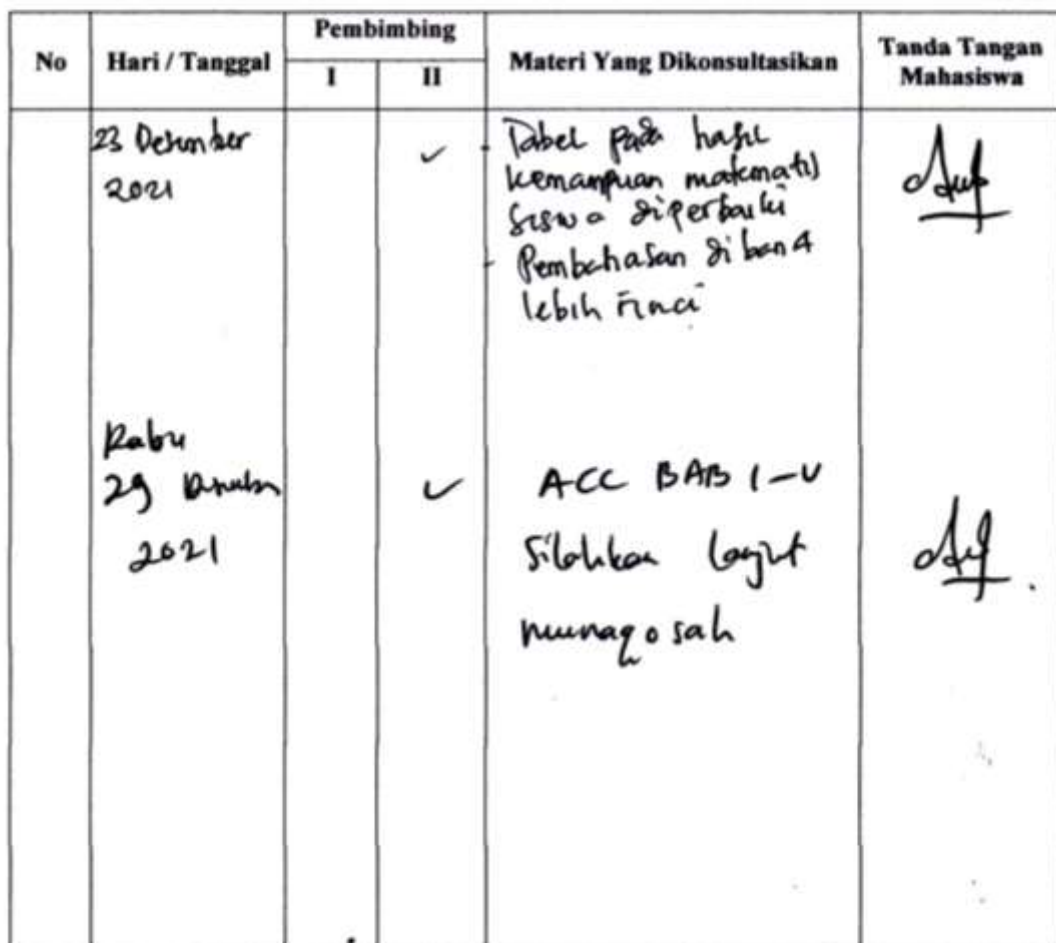 No
Hari / Tanggal
Pembimbing
I
II
Materi Yang Dikonsultasikan
Tanda Tangan
Mahasiswa
23 Desember
2021
- Tabel pada hasil
kemampuan matematis
siswa diperbaiki
- Pembahasan di bab 4
lebih rinci
Rabu
29
2021
ACC BAB I-V
Silahkan lanjut
munaqosah